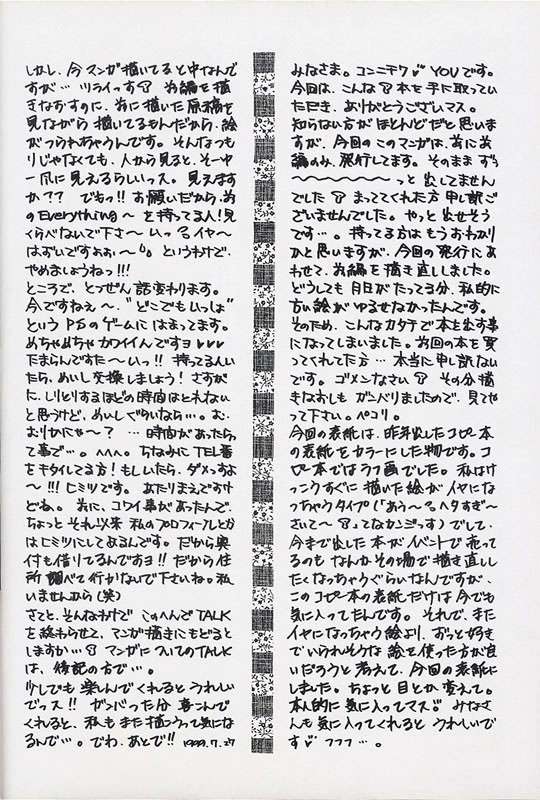 みなさま。コンニチワ♡ YOUです。
今回は、こんな本を手に取ってい
ただき、ありがとうございマス。
知らない方がほとんどだと思いま
すが、今回のこのマンガは、前に前
編のみ、発行してます。そのまま ずぅ
〜〜〜〜〜〜〜っと 出してません
でした 待っててくれた方 申し訳ご
ざいませんでした。やっと出せそう
です…。持ってる方はもうおわかり
かと思いますが、今回の発行にあ
わせて、前編を描き直ししました。
どうしても 月日がたってる分、私的に
古い絵が ゆるせなかったんです。
そのため、こんなカタチで本を出す事
になってしまいました。前回の本を買
ってくれてた方… 本当に申し訳ない
です。ゴメンなさい その分描
きなおしも ガンバリましたので、見てや
って下さい。ペコリ。
今回の表紙は、昨年出したコピー本
の表紙をカラーにした物です。コ
ピー本ではラフ画でした。私はけ
っこうすぐに描いた絵がイヤにな
っちゃうタイプ(「あう〜 ヘタすぎ〜
さいて〜 」ってなカンジっす)でして、
今まで出した本がイベントで売って
るのも なんか その場で描き直しし
たくなっちゃうぐらいなんですが、
このコピー本の表紙だけは今でも
気に入ってたんです。それで、また
イヤになっちゃう絵より、ずっと好き
でいられそうな 絵を使った方が良
いだろうと考えて、今回の表紙に
しました。ちょっと目とか変えて。
本人的に気に入ってマス♡ みなさ
んも気に入ってくれると うれしいで
す♡ フフフ…。
しかし、今マンガ描いてると中なんで
すが… ツライっす 前編を描
きなおすのに、前に描いた原稿を
見ながら 描いてるもんだから、絵
がつられちゃうんです。そんなつも
りじゃなくても、人から見ると、その中
一爪に見えるらしいっス。見えます
か?? でもっ!! お願いだから、前
のEverything〜 を持ってる人!見
くらべないで下さ〜いっ イヤ〜
はずいですょぉぉ〜 というわけで、
やめましょうねっ!!!
ところで、とつぜん話変わります。
今ですねぇ〜、"どこでもいっしょ"
という PSのゲームに はまってます。
めちゃめちゃ カワイイんですヨ♡♡♡
たまらんですた〜いっ!! 持ってる人い
たら、めいし交換しましょう! さすが
に、しりとりするほどの時間はとれない
と思うけど、めいしぐらいなら…。む、
むりかにゃ〜? …時間があったら
って事で…。へへへ。ちなみに TEL番
をキタイしてる方! もしいたら、ダメっすよ
〜!!! ヒミツです。 あたりまえですけ
どね。前に、コワイ事があったんで、
ちょっとそれ以来 私のプロフィールとか
はヒミツにしてあるんです。だから奥
付も借りてるんですヨ!! だから住
所調べて行かないで下さいねっ 私
いませんから(笑)
さてと、そんなわけで このへんでTALK
を終わらせて、マンガ描きにもどると
しますか… マンガについてのTALK
は、後記の方で…。
少しでも 楽しんでくれると うれしい
でっス!! ガンバった分 喜こんで
くれると、私もまた描こうって気にな
るんで…。でわ、あとで!! 1999.7.27